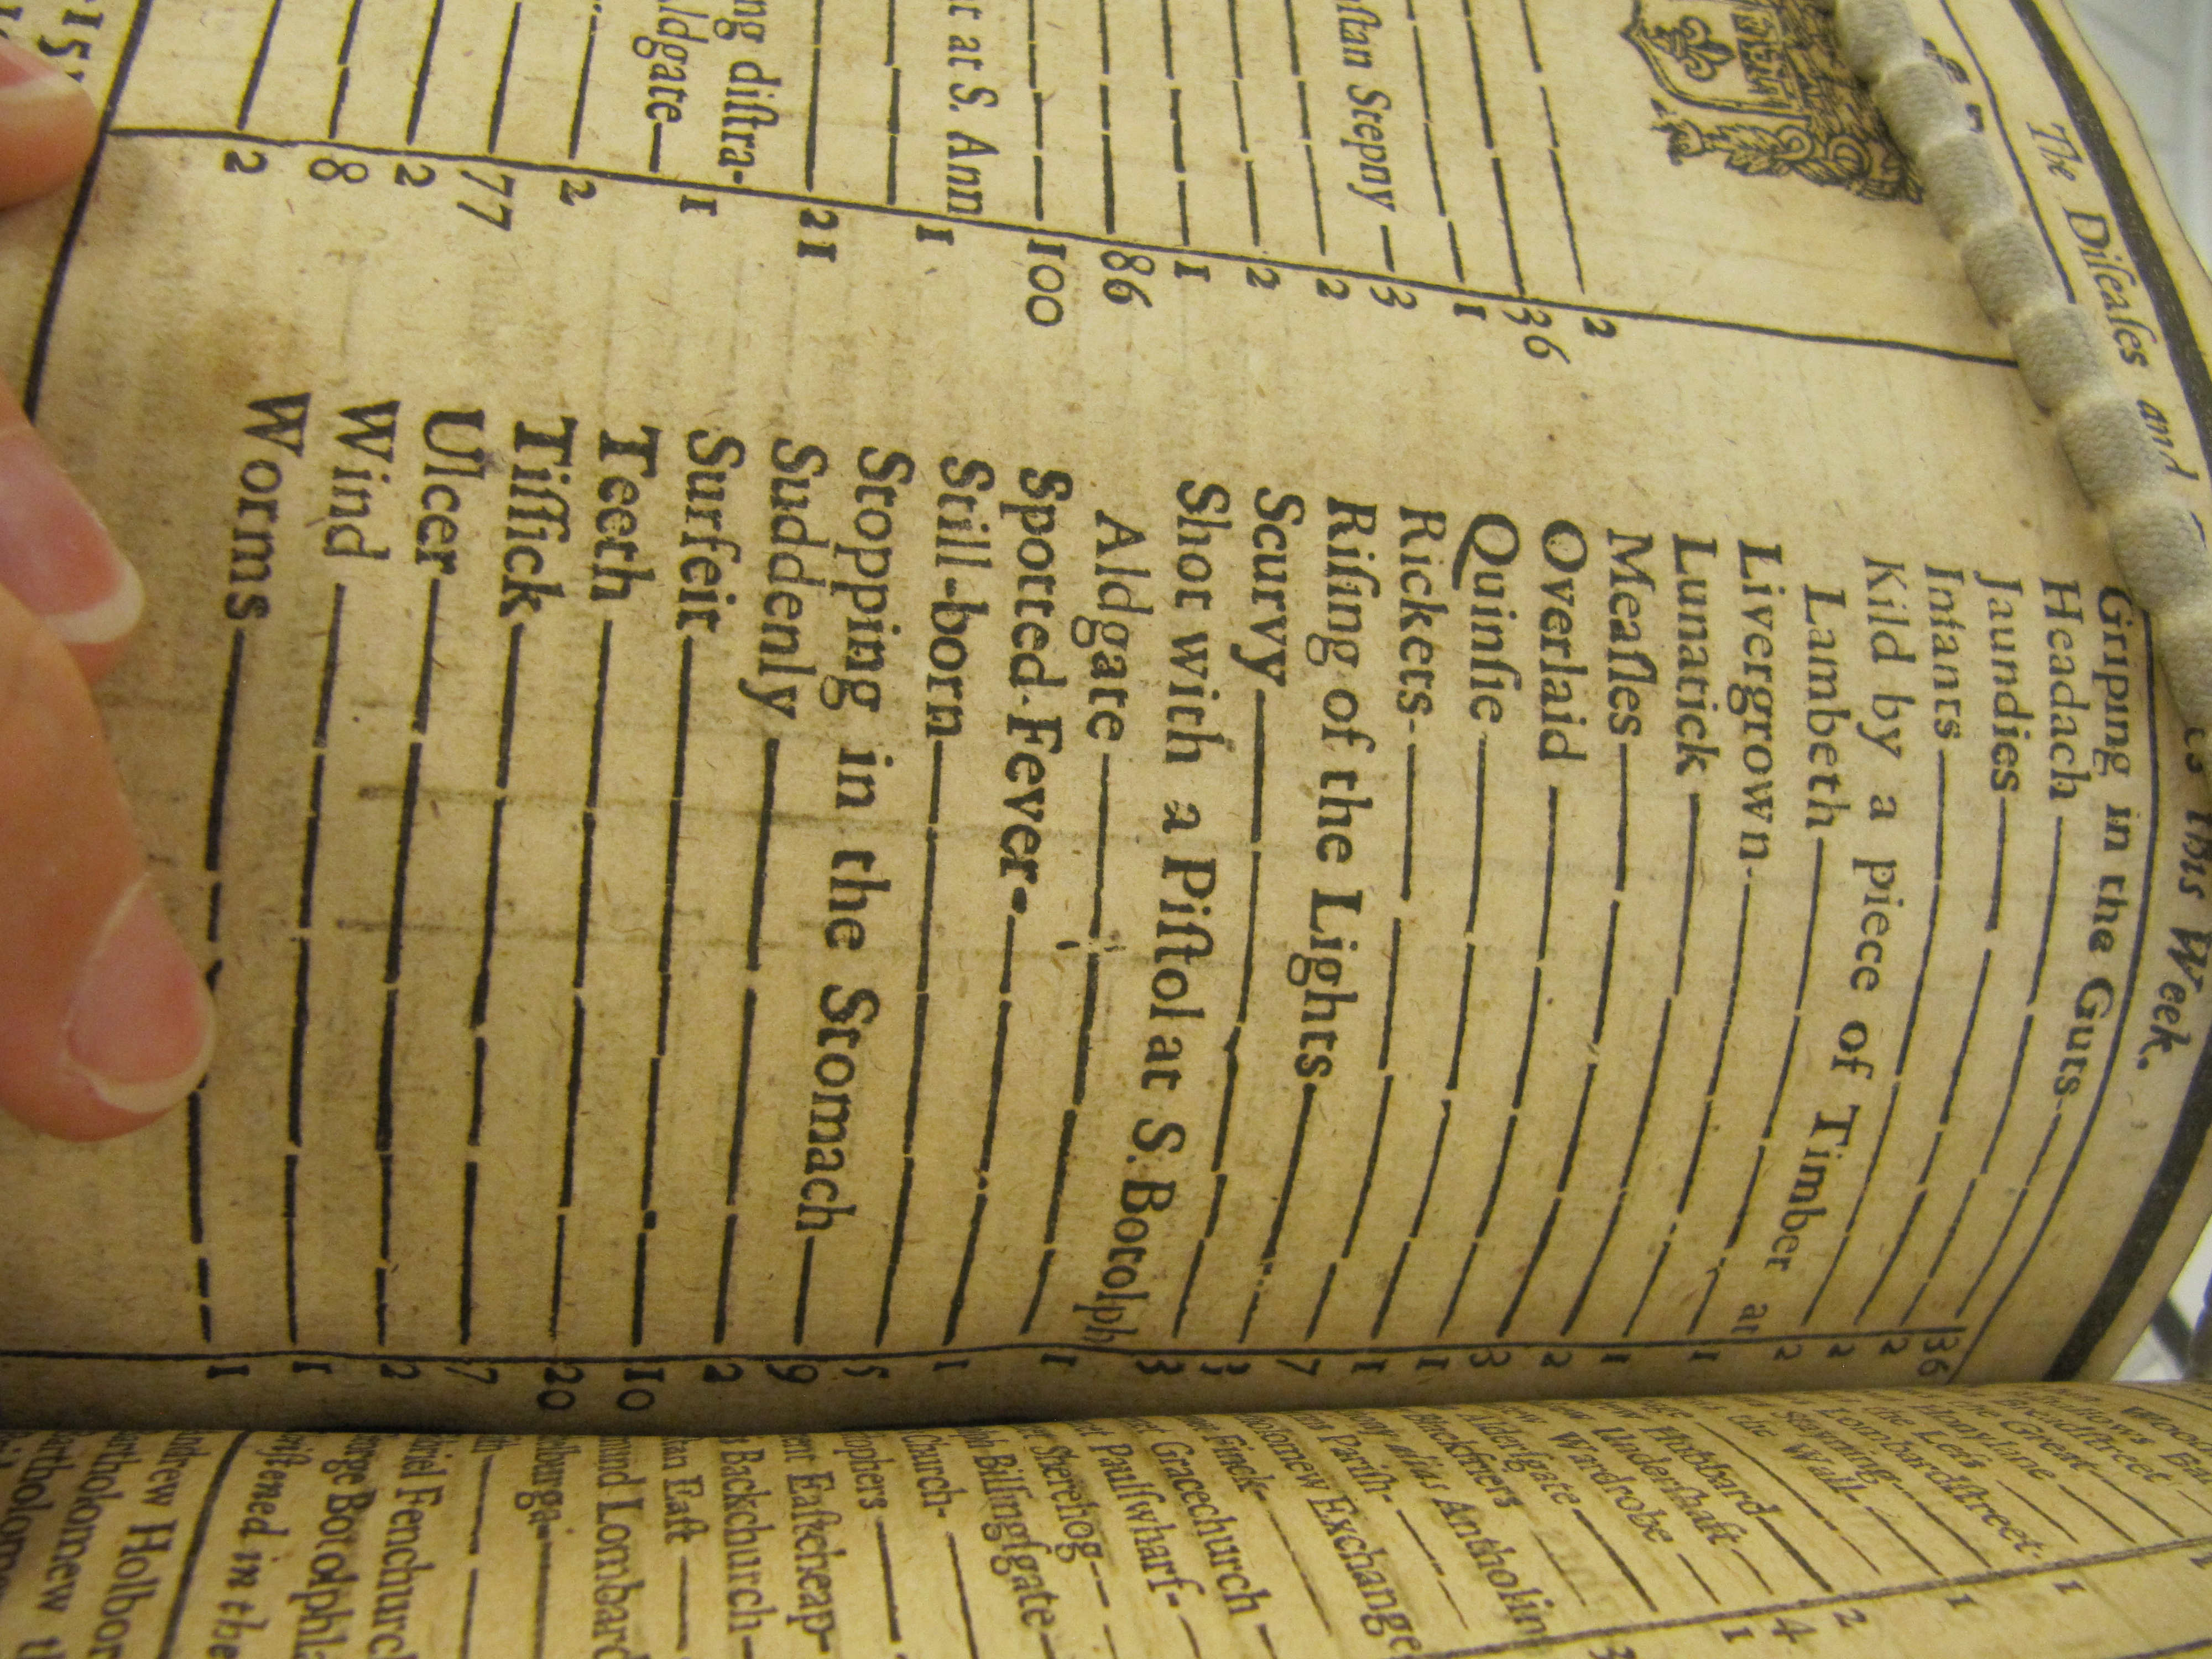 The Diſeaſes and this Week.
2
36
1
ſtan Stepny — 3
2
2
1
86
100
at S. Ann
1
21
ng diſtra-
ldgate — 1
2
77
2
8
2
Griping in the Guts — 36
Headach — 2
Jaundies — 2
Infants — 2
Kild by a piece of Timber at
Lambeth — 1
Livergrown — 1
Lunatick — 2
Meaſles — 3
Overlaid — 1
Quinſie — 1
Rickets — 7
Riſing of the Lights —
Scurvy — 3
Shot with a Piſtol at S. Botolph
Aldgate — 1
Spotted Fever — 1
Still-born — 5
Stopping in the Stomach — 9
Suddenly — 2
Surfeit — 10
Teeth — 20
Tiſſick — 7
Ulcer — 2
Wind — 1
Worms — 1
Breadſtreet
Great
Honylane
the Leſs
Lombardſtreet
Stayning
the Wall
Hubbard
Underſhaft
Wardrobe
Alderſgate
Blackfriers
Antholin
Pariſh
Exchange
Finck
Gracechurch
Paulſwharf
Sherehog
Billingſgate
church
ophers
Eaſtcheap
Backchurch
Eaſt
Lombard
Fenchurch
Botolph
in the
Holborn
artholomew